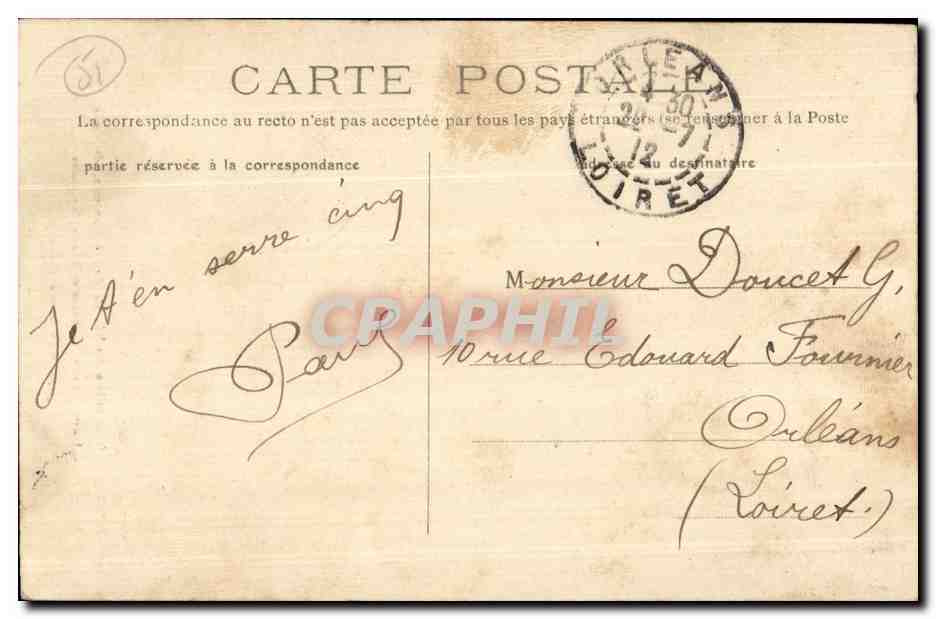 51
CARTE POSTALE
La correspondance au recto n'est pas acceptée par tous les pays étrangers (se renseigner à la Poste
partie réservée à la correspondance
adresse du destinataire
ORLEANS
30
7
12
LOIRET
Je t'en serre cinq
Paul
Monsieur Doucet G,
10 rue Edouard Fournier
Orléans
(Loiret.)
CRAPHIL